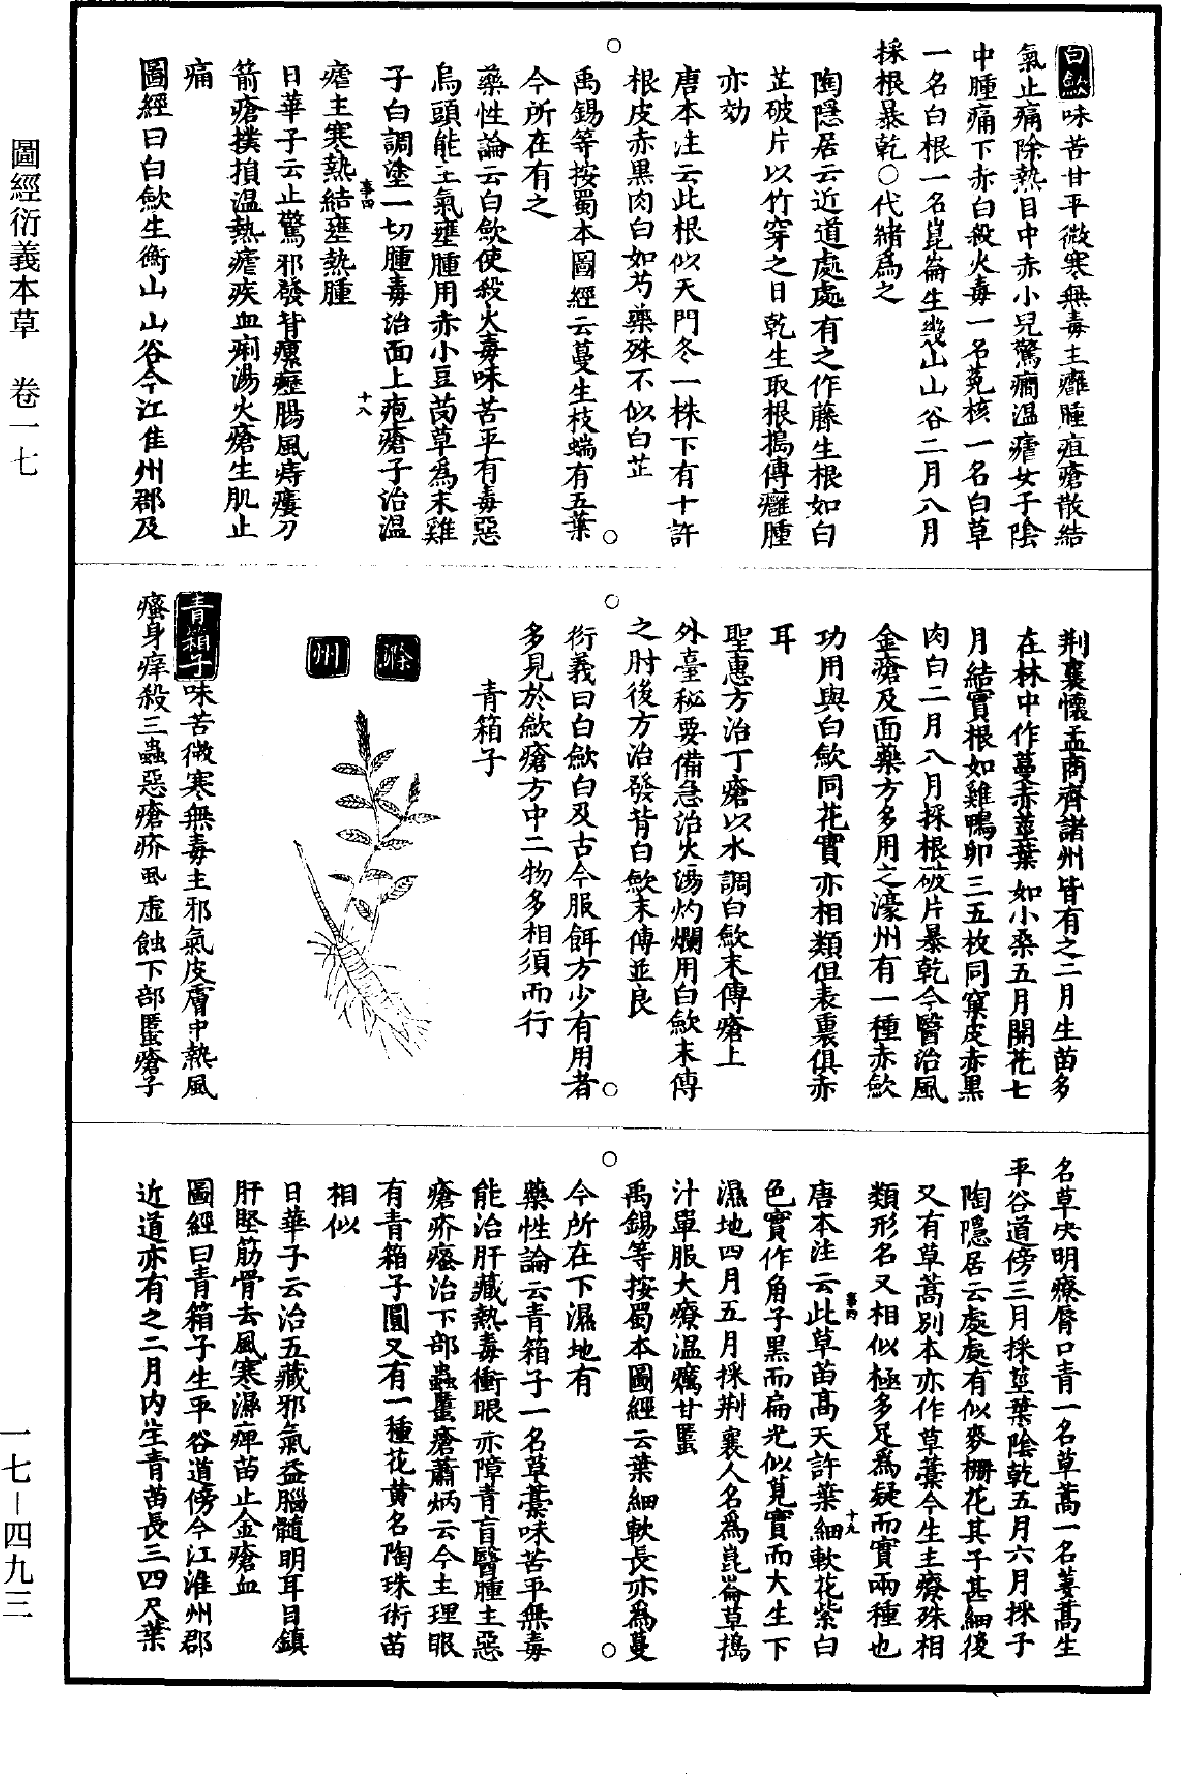 白蘞味苦甘平微寒無毒主癰腫疽瘡散結
氣止痛除熱目中赤小兒驚癇温瘧女子陰
中腫痛下赤白殺火毒一名菟核一名白草
一名白根一名崑崙生衡山山谷二月八月
採根暴乾○代緒為之
陶隱居云近道處處有之作藤生根如白
芷破片以竹穿之日乾生取根搗傅癰腫
亦効
唐本注云此根似天門冬一株下有十許
根皮赤黑肉白如芍藥殊不似白芷
禹錫等按蜀本圖經云蔓生枝端有五葉
今所在有之
藥性論云白蘞使殺火毒味苦平有毒惡
烏頭能主氣壅腫用赤小豆䒷草為末雞
子白調塗一切腫毒治面上疱瘡子治温
瘧主寒熱結壅熱腫
事四
十八
日華子云止驚邪發背瘰癧腸風痔瘻刀
箭瘡撲損温熱瘧疾血痢湯火瘡生肌止
痛
圖經曰白蘞生衡山山谷今江淮州郡及
荆襄懷孟商齊諸州皆有之二月生苗多
在林中作蔓赤莖葉如小桑五月開花七
月結實根如雞鴨卵三五枚同窠皮赤黑
肉白二月八月採根破片暴乾今醫治風
金瘡及面藥方多用之濠州有一種赤蘞
功用與白蘞同花實亦相類但表裏俱赤
耳
聖惠方治丁瘡以水調白蘞末傅瘡上
外臺秘要備急治火湯灼爛用白蘞末傅
之肘後方治發背白蘞末傅並良
衍義曰白蘞白及古今服餌方少有用者
多見於斂瘡方中二物多相須而行
青箱子
滁
州
青箱子味苦微寒無毒主邪氣皮膚中熱風
瘙身痒殺三蟲惡瘡疥虱痔蝕下部䘌瘡子
名草決明療脣口青一名草蒿一名萋蒿生
平谷道傍三月採莖葉陰乾五月六月採子
陶隱居云處處有似麥柵花其子甚細後
又有草蒿別本亦作草藁今生主療殊相
類形名又相似極多足為疑而實兩種也
唐本注云此草苗高尺許葉細軟花紫白
事四
十九
色實作角子黑而扁光似莧實而大生下
濕地四月五月採荆襄人名為崑崙草搗
汁單服大療温癘甘䘌
禹錫等按蜀本圖經云葉細軟長亦為蔓
今所在下濕地有
藥性論云青箱子一名草藁味苦平無毒
能治肝藏熱毒衝眼赤障青盲翳腫主惡
瘡疥瘙治下部蟲䘌瘡蕭炳云今主理眼
有青箱子圓又有一種花黄名陶珠術苗
相似
日華子云治五藏邪氣益腦髓明耳目鎮
肝堅筋骨去風寒濕痺苗止金瘡血
圖經曰青箱子生平谷道傍今江淮州郡
近道亦有之二月内生青苗長三四尺葉
圖經衍義本草　卷一七
一七－四九三